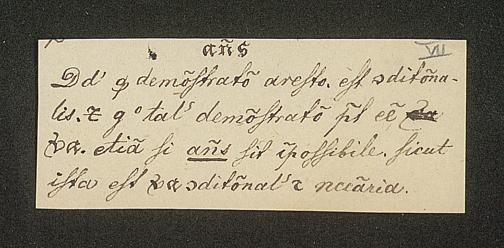 añs
VII
Dd' ꝙ demõstratõ aresto. est ↄditõna-
lis. ⁊ gº tal' demõstratõ p̃t eẽ
va. etiã si añs sit ĩpossibile. sicut
ista est va ↄditõnal' ⁊ nccãria.